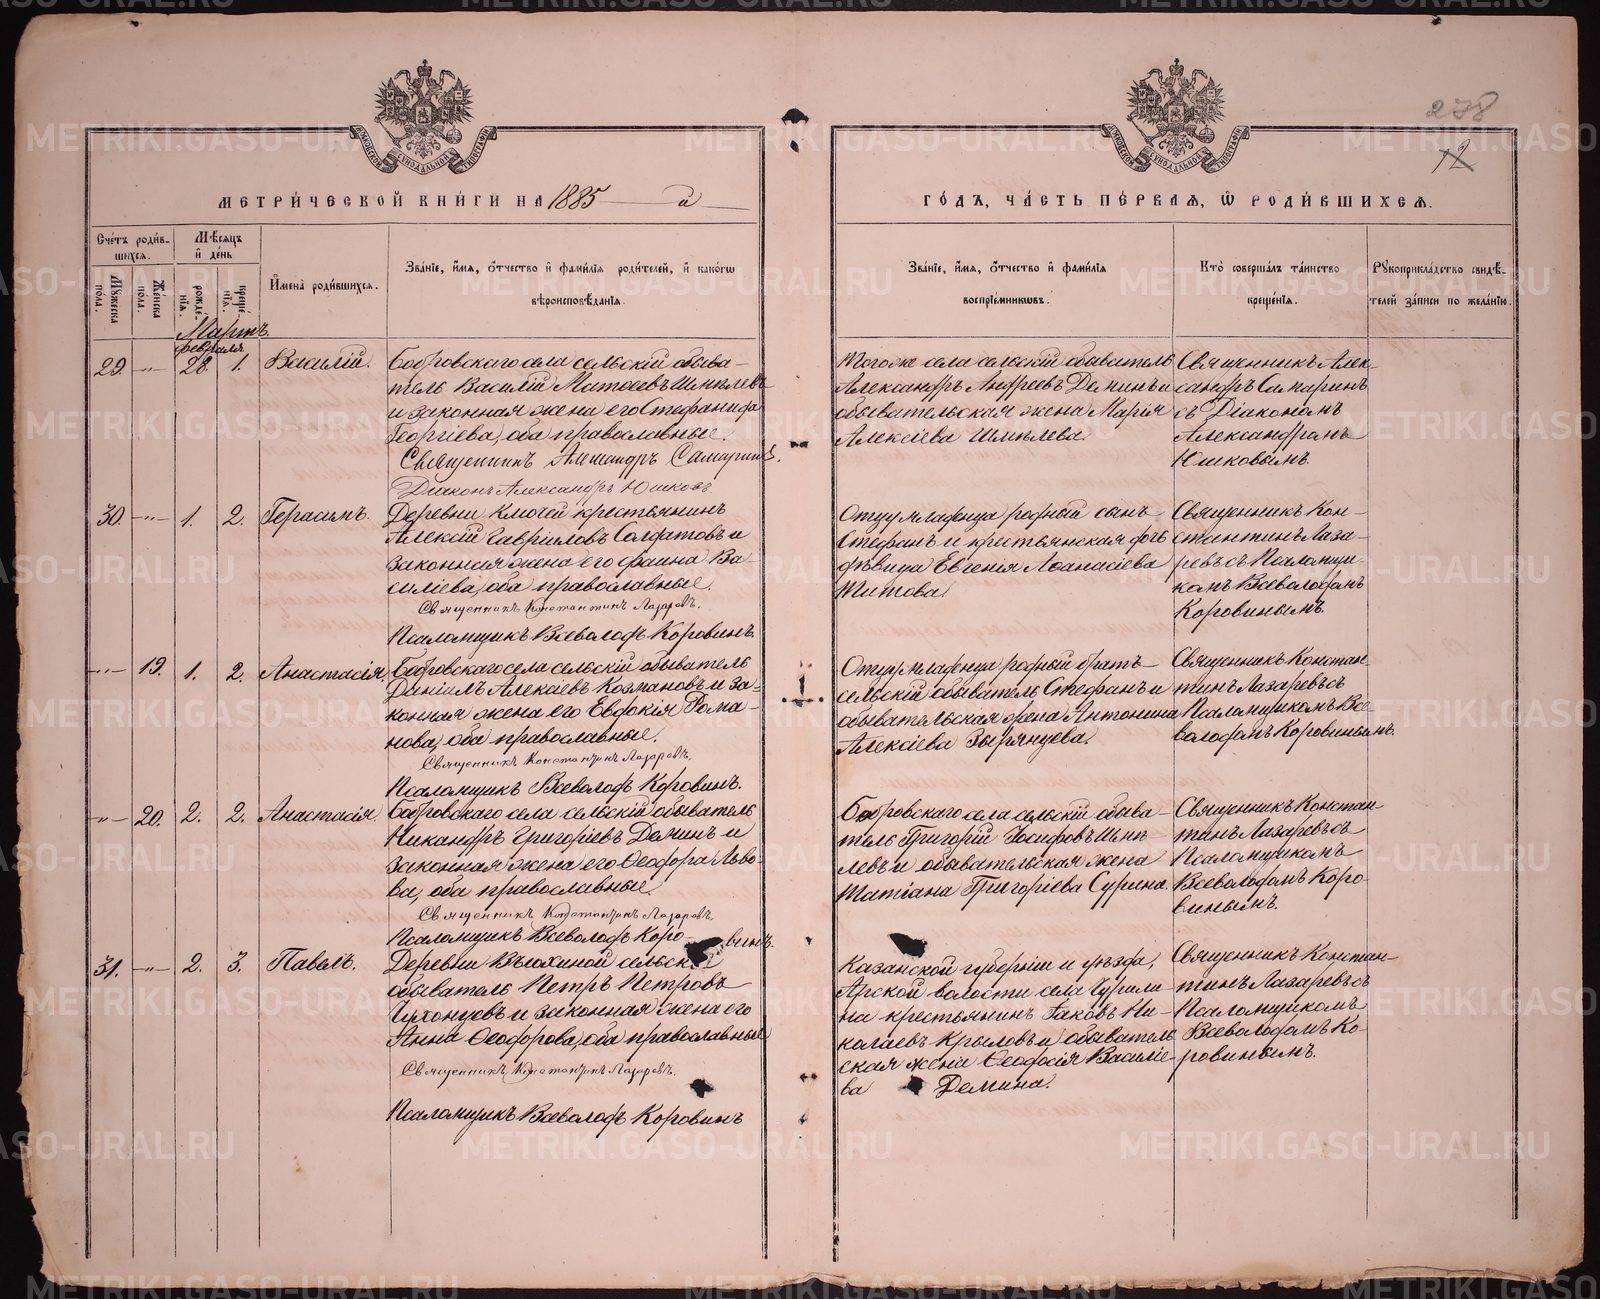 278
12
МЕТРИЧЕСКОЙ КНИГИ НА 1885 й
ГОДЪ, ЧАСТЬ ПЕРВАЯ, Ѿ РОДИВШИХСЯ.
Счетъ родив-
шихся.
Мужеска пола.
Женска пола.
Мѣсяцъ
и день
рожденія.
крещенія.
Имена родившихся.
Званіе, имя, отчество и фамилія родителей, и какогѡ
вѣроисповѣданія.
Званіе, имя, отчество и фамилія
воспріемниковъ.
Кто совершалъ таинство
крещенія.
Рукоприкладство свидѣ-
телей записи по желанію.
Мартъ.
февраля
29. -"- 28. 1. Василій.
Бобровскаго села сельскій обыва-
тель Василій Матѳеевъ Шмелевъ
и законная жена его Стефанида
Георгіева, оба православные.
Священникъ Александръ Самаринъ.
Діаконъ Александръ Юшковъ
Тогоже села сельскій обыватель
Александръ Андреевъ Деминъ и
обывательская жена Марія
Алексіева Шмелева.
Священникъ Алек-
сандръ Самаринъ
съ Діакономъ
Александромъ
Юшковымъ.
30. -"- 1. 2. Герасимъ.
Деревни Ключей крестьянинъ
Алексій Гавриловъ Солдатовъ и
законная жена его Фаина Ва-
силіева, оба православные.
Священникъ Константинъ Лазаревъ.
Псаломщикъ Всеволодъ Коровинъ.
Отцу младенца родный сынъ
Стефанъ и крестьянская дочь
дѣвица Евгенія Аѳанасіева
Титова.
Священникъ Кон-
стантинъ Лаза-
ревъ съ Псаломщи-
комъ Всеволодомъ
Коровинымъ.
-"- 19. 1. 2. Анастасія.
Бобровскаго села сельскій обыватель
Даніилъ Алексіевъ Козмановъ и за-
конная жена его Евдокія Рома-
нова, оба православные.
Священникъ Константинъ Лазаревъ.
Псаломщикъ Всеволодъ Коровинъ.
Отцу младенца родный братъ
сельскій обыватель Стефанъ и
обывательская жена Антонина
Алексіева Зырянцева.
Священникъ Констан-
тинъ Лазаревъ съ
Псаломщикомъ Все-
володомъ Коровинымъ.
-"- 20. 2. 2. Анастасія.
Бобровскаго села сельскій обыватель
Никандръ Григоріевъ Деминъ и
законная жена его Ѳеодора Льво-
ва, оба православные.
Священникъ Константинъ Лазаревъ.
Псаломщикъ Всеволодъ Коро-винъ.
Бобровскаго села сельскій обыва-
тель Григорій Іосифовъ Шме-
левъ и обывательская жена
Татіана Григоріева Сурина.
Священникъ Констан-
тинъ Лазаревъ съ
Псаломщикомъ
Всеволодомъ Коро-
винымъ.
31. -"- 2. 3. Павелъ.
Деревни Вьюхиной сельскій
обыватель Петръ Петровъ
Чухонцевъ и законная жена его
Анна Ѳеодорова, оба православные
Священникъ Константинъ Лазаревъ.
Псаломщикъ Всеволодъ Коровинъ
Казанской губерніи и уѣзда,
Арской волости села Чурили-
на крестьянинъ Іаковъ Ни-
колаевъ Крыловъ и обыватель-
ская жена Ѳеодосія Василіе-
ва Демина.
Священникъ Констан-
тинъ Лазаревъ съ
Псаломщикомъ
Всеволодомъ Ко-
ровинымъ.
METRIKI.GASO-URAL.RU